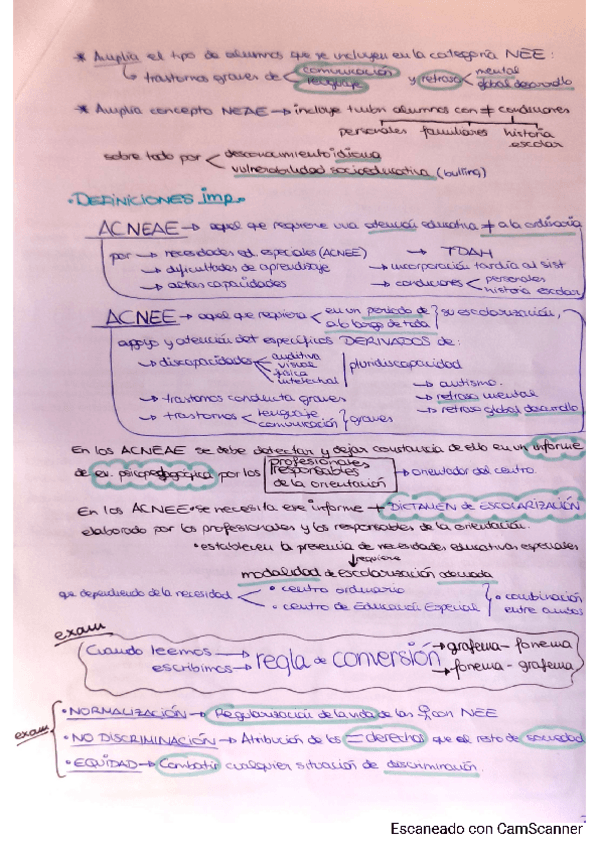 * Amplía el tipo de alumnos que se incluyen en la categoría NEE:
↳ trastornos graves de < comunicación / lenguaje y retraso < mental / global desarrollo
* Amplía concepto NEAE → incluye tmbn alumnos con ≠ condiciones
personales familiares historia escolar
sobre todo por < desconocimiento idioma
vulnerabilidad socioeducativa (bulling)
· DEFINICIONES imp.
ACNEAE → aquel que requiere una atención educativa ≠ a la ordinaria
por → necesidades ed. especiales (ACNEE) → TDAH
→ dificultades de aprendizaje → incorporación tardía al sist
→ altas capacidades → condiciones < personales / historia escolar
ACNEE → aquel que requiera < en un periodo de / a lo largo de toda } su escolarización,
apoyo y atención det específicos DERIVADOS de:
→ discapacidades < auditiva / visual / física / intelectual | pluridiscapacidad
→ autismo.
→ trastornos conducta graves → retraso mental
→ trastornos < lenguaje / comunicación } graves → retraso global desarrollo
En los ACNEAE se debe detectar y dejar constancia de ello en un informe
de ev. psicopedagógica por los profesionales responsables de la orientación → orientador del centro.
En los ACNEE se necesita ese informe + DICTAMEN DE ESCOLARIZACIÓN
elaborado por los profesionales y los responsables de la orientación.
· establecen la presencia de necesidades educativas especiales
↓ requiere
modalidad de escolarización adecuada
que dependiendo de la necesidad < · centro ordinario
· centro de Educación Especial } · combinación entre ambos
exam
Cuando leemos → regla de conversión → grafema - fonema
escribimos → → fonema - grafema
exam
· NORMALIZACIÓN → Regularización de la vida de las con NEE
· NO DISCRIMINACIÓN → Atribución de los = derechos que el resto de sociedad
· EQUIDAD → Combatir cualquier situación de discriminación.
Escaneado con CamScanner